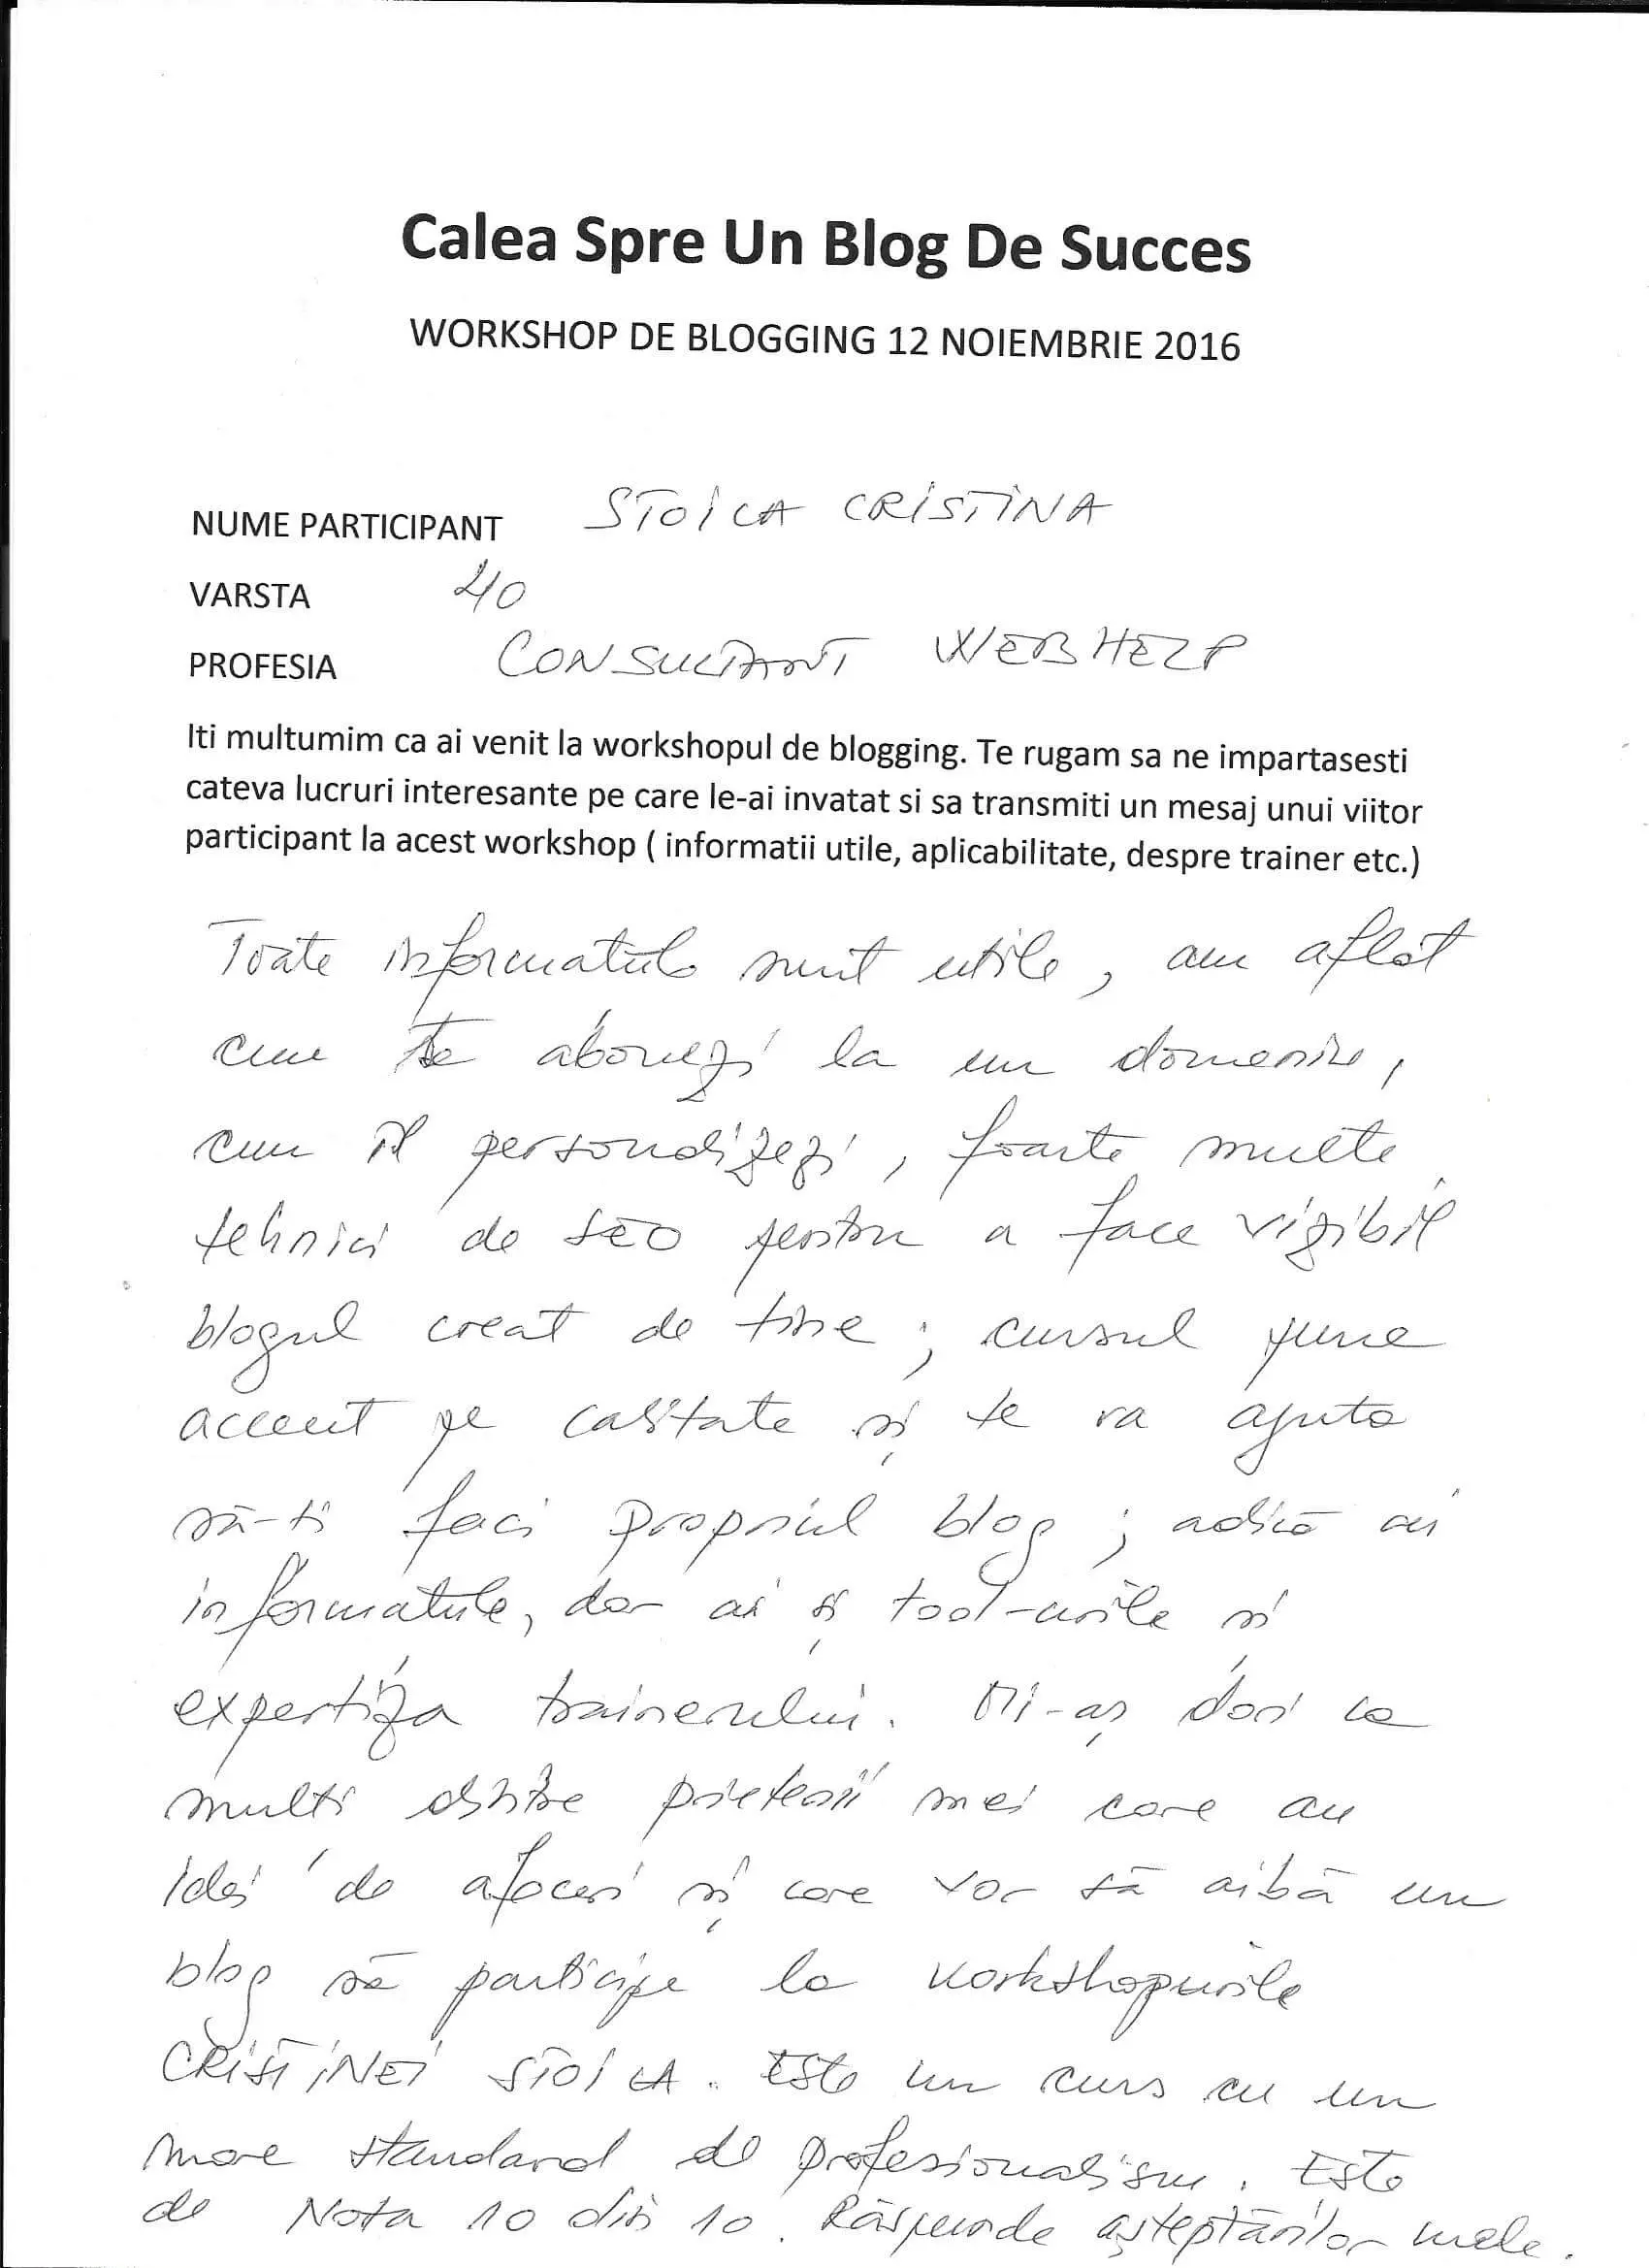 Calea Spre Un Blog De Succes
WORKSHOP DE BLOGGING 12 NOIEMBRIE 2016
NUME PARTICIPANT STOICA CRISTINA
VARSTA 40
PROFESIA CONSULTANT WEBHELP
Iti multumim ca ai venit la workshopul de blogging. Te rugam sa ne impartasesti
cateva lucruri interesante pe care le-ai invatat si sa transmiti un mesaj unui viitor
participant la acest workshop ( informatii utile, aplicabilitate, despre trainer etc.)
Toate informatiile sunt utile, am aflat
cum te abonezi la un domeniu,
cum îl personalizezi, foarte multe
tehnici de SEO pentru a face vizibil
blogul creat de tine; cursul pune
accent pe calitate și te va ajuta
să-ti faci propriul blog; adică ai
informatiile, dar ai și tool-urile și
expertiza trainerului. Mi-aș dori ca
multi dintre prietenii mei care au
idei de afaceri și care vor să aibă un
blog să participe la workshopurile
CRISTINEI STOICA. Este un curs cu un
mare standard de profesionalism. Este
de Nota 10 din 10. Răspunde așteptărilor mele.